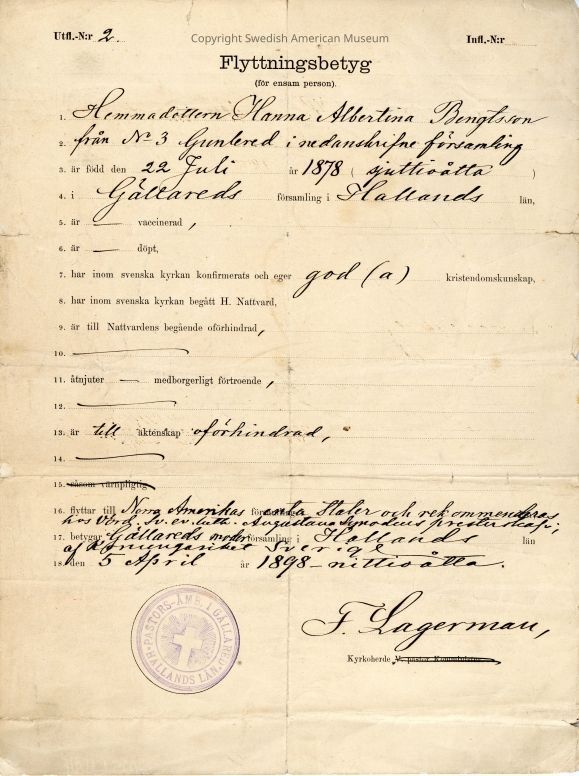 Utfl.-N:r 2.
Copyright Swedish American Museum
Infl.-N:r
Flyttningsbetyg
(för ensam person).
1. Hemmadottern Hanna Albertina Bengtsson
2. från No 3 Gunnered i nedanskrifne församling
3. är född den 22 Juli år 1878 (sjuttioåtta)
4. i Gällareds församling i Hallands län,
5. är — vaccinerad,
6. är — döpt,
7. har inom svenska kyrkan konfirmerats och eger god (a) kristendomskunskap,
8. har inom svenska kyrkan begått H. Nattvard,
9. är till Nattvardens begående oförhindrad,
10.
11. åtnjuter — medborgerligt förtroende,
12.
13. är till äktenskap oförhindrad,
14.
15. såsom värnpligtig
16. flyttar till Norra Amerikas förenta Stater och rekommenderas
hos Vörd. Sv. ev. luth. Augustana Synodens presterskap;
17. betygar Gällareds moderförsamling i Hallands län
af Konungariket Sverige
18. den 5 April år 1898 – nittioåtta.
F. Lagerman,
Kyrkoherde
PASTORS-ÄMB. I GÄLLARED
HALLANDS LÄN.